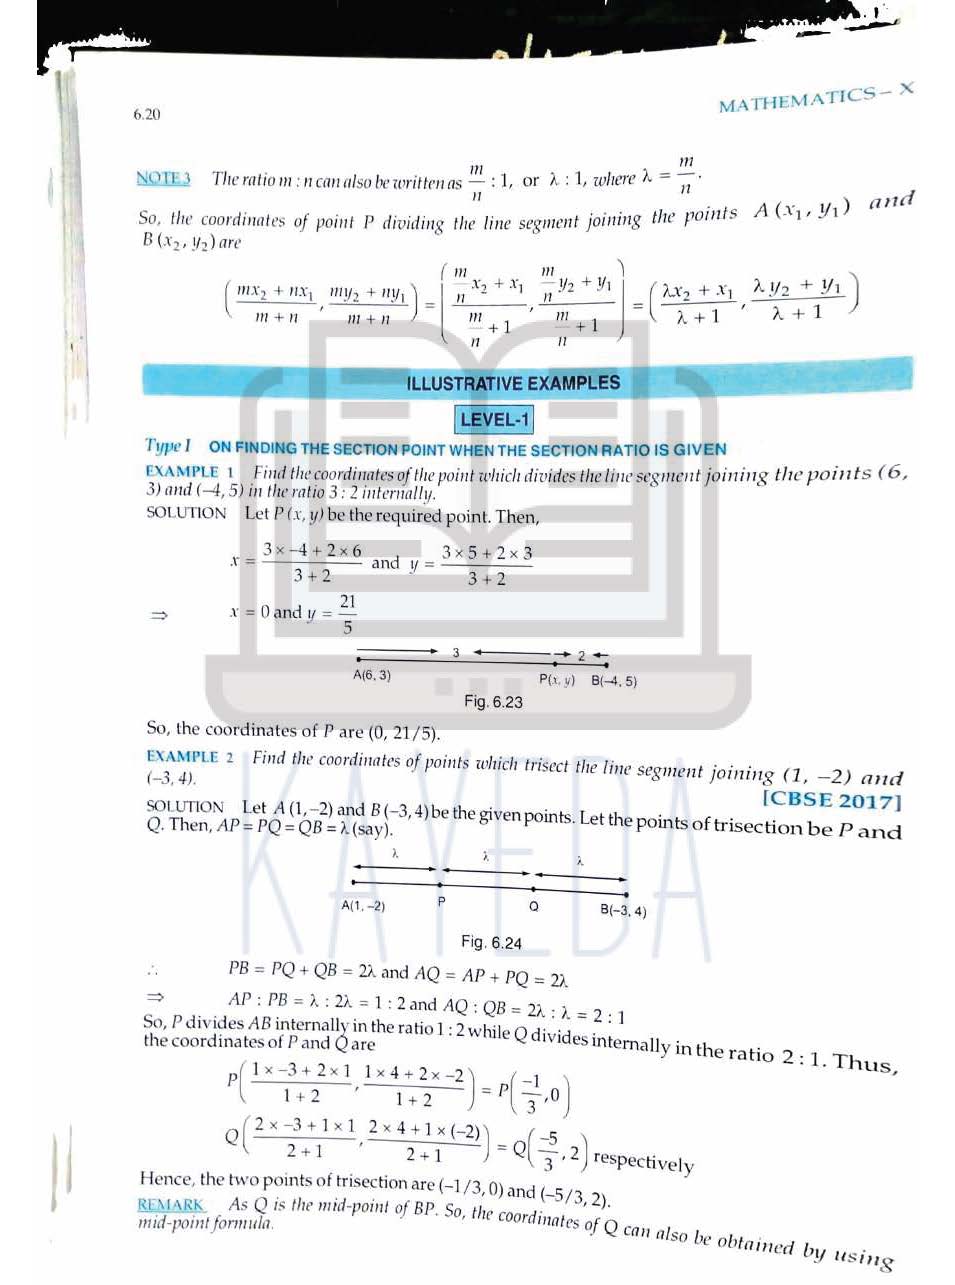 6.20
MATHEMATICS – X
NOTE 3 The ratio m : n can also be written as m/n : 1, or λ : 1, where λ = m/n.
So, the coordinates of point P dividing the line segment joining the points A (x₁, y₁) and
B (x₂, y₂) are
((mx₂ + nx₁)/(m + n), (my₂ + ny₁)/(m + n)) = ((m/n x₂ + x₁)/(m/n + 1), (m/n y₂ + y₁)/(m/n + 1)) = ((λx₂ + x₁)/(λ + 1), (λ y₂ + y₁)/(λ + 1))
ILLUSTRATIVE EXAMPLES
LEVEL-1
Type I ON FINDING THE SECTION POINT WHEN THE SECTION RATIO IS GIVEN
EXAMPLE 1 Find the coordinates of the point which divides the line segment joining the points (6,
3) and (–4, 5) in the ratio 3 : 2 internally.
SOLUTION Let P (x, y) be the required point. Then,
x = (3 × –4 + 2 × 6)/(3 + 2) and y = (3 × 5 + 2 × 3)/(3 + 2)
⇒ x = 0 and y = 21/5
3 2
A(6, 3) P(x, y) B(–4, 5)
Fig. 6.23
So, the coordinates of P are (0, 21/5).
EXAMPLE 2 Find the coordinates of points which trisect the line segment joining (1, –2) and
(–3, 4).
[CBSE 2017]
SOLUTION Let A (1, –2) and B (–3, 4) be the given points. Let the points of trisection be P and
Q. Then, AP = PQ = QB = λ (say).
λ λ λ
A(1, –2) P Q B(–3, 4)
Fig. 6.24
∴ PB = PQ + QB = 2λ and AQ = AP + PQ = 2λ
⇒ AP : PB = λ : 2λ = 1 : 2 and AQ : QB = 2λ : λ = 2 : 1
So, P divides AB internally in the ratio 1 : 2 while Q divides internally in the ratio 2 : 1. Thus,
the coordinates of P and Q are
P((1 × –3 + 2 × 1)/(1 + 2), (1 × 4 + 2 × –2)/(1 + 2)) = P(–1/3, 0)
Q((2 × –3 + 1 × 1)/(2 + 1), (2 × 4 + 1 × (–2))/(2 + 1)) = Q(–5/3, 2) respectively
Hence, the two points of trisection are (–1/3, 0) and (–5/3, 2).
REMARK As Q is the mid-point of BP. So, the coordinates of Q can also be obtained by using
mid-point formula.
KAYEDA